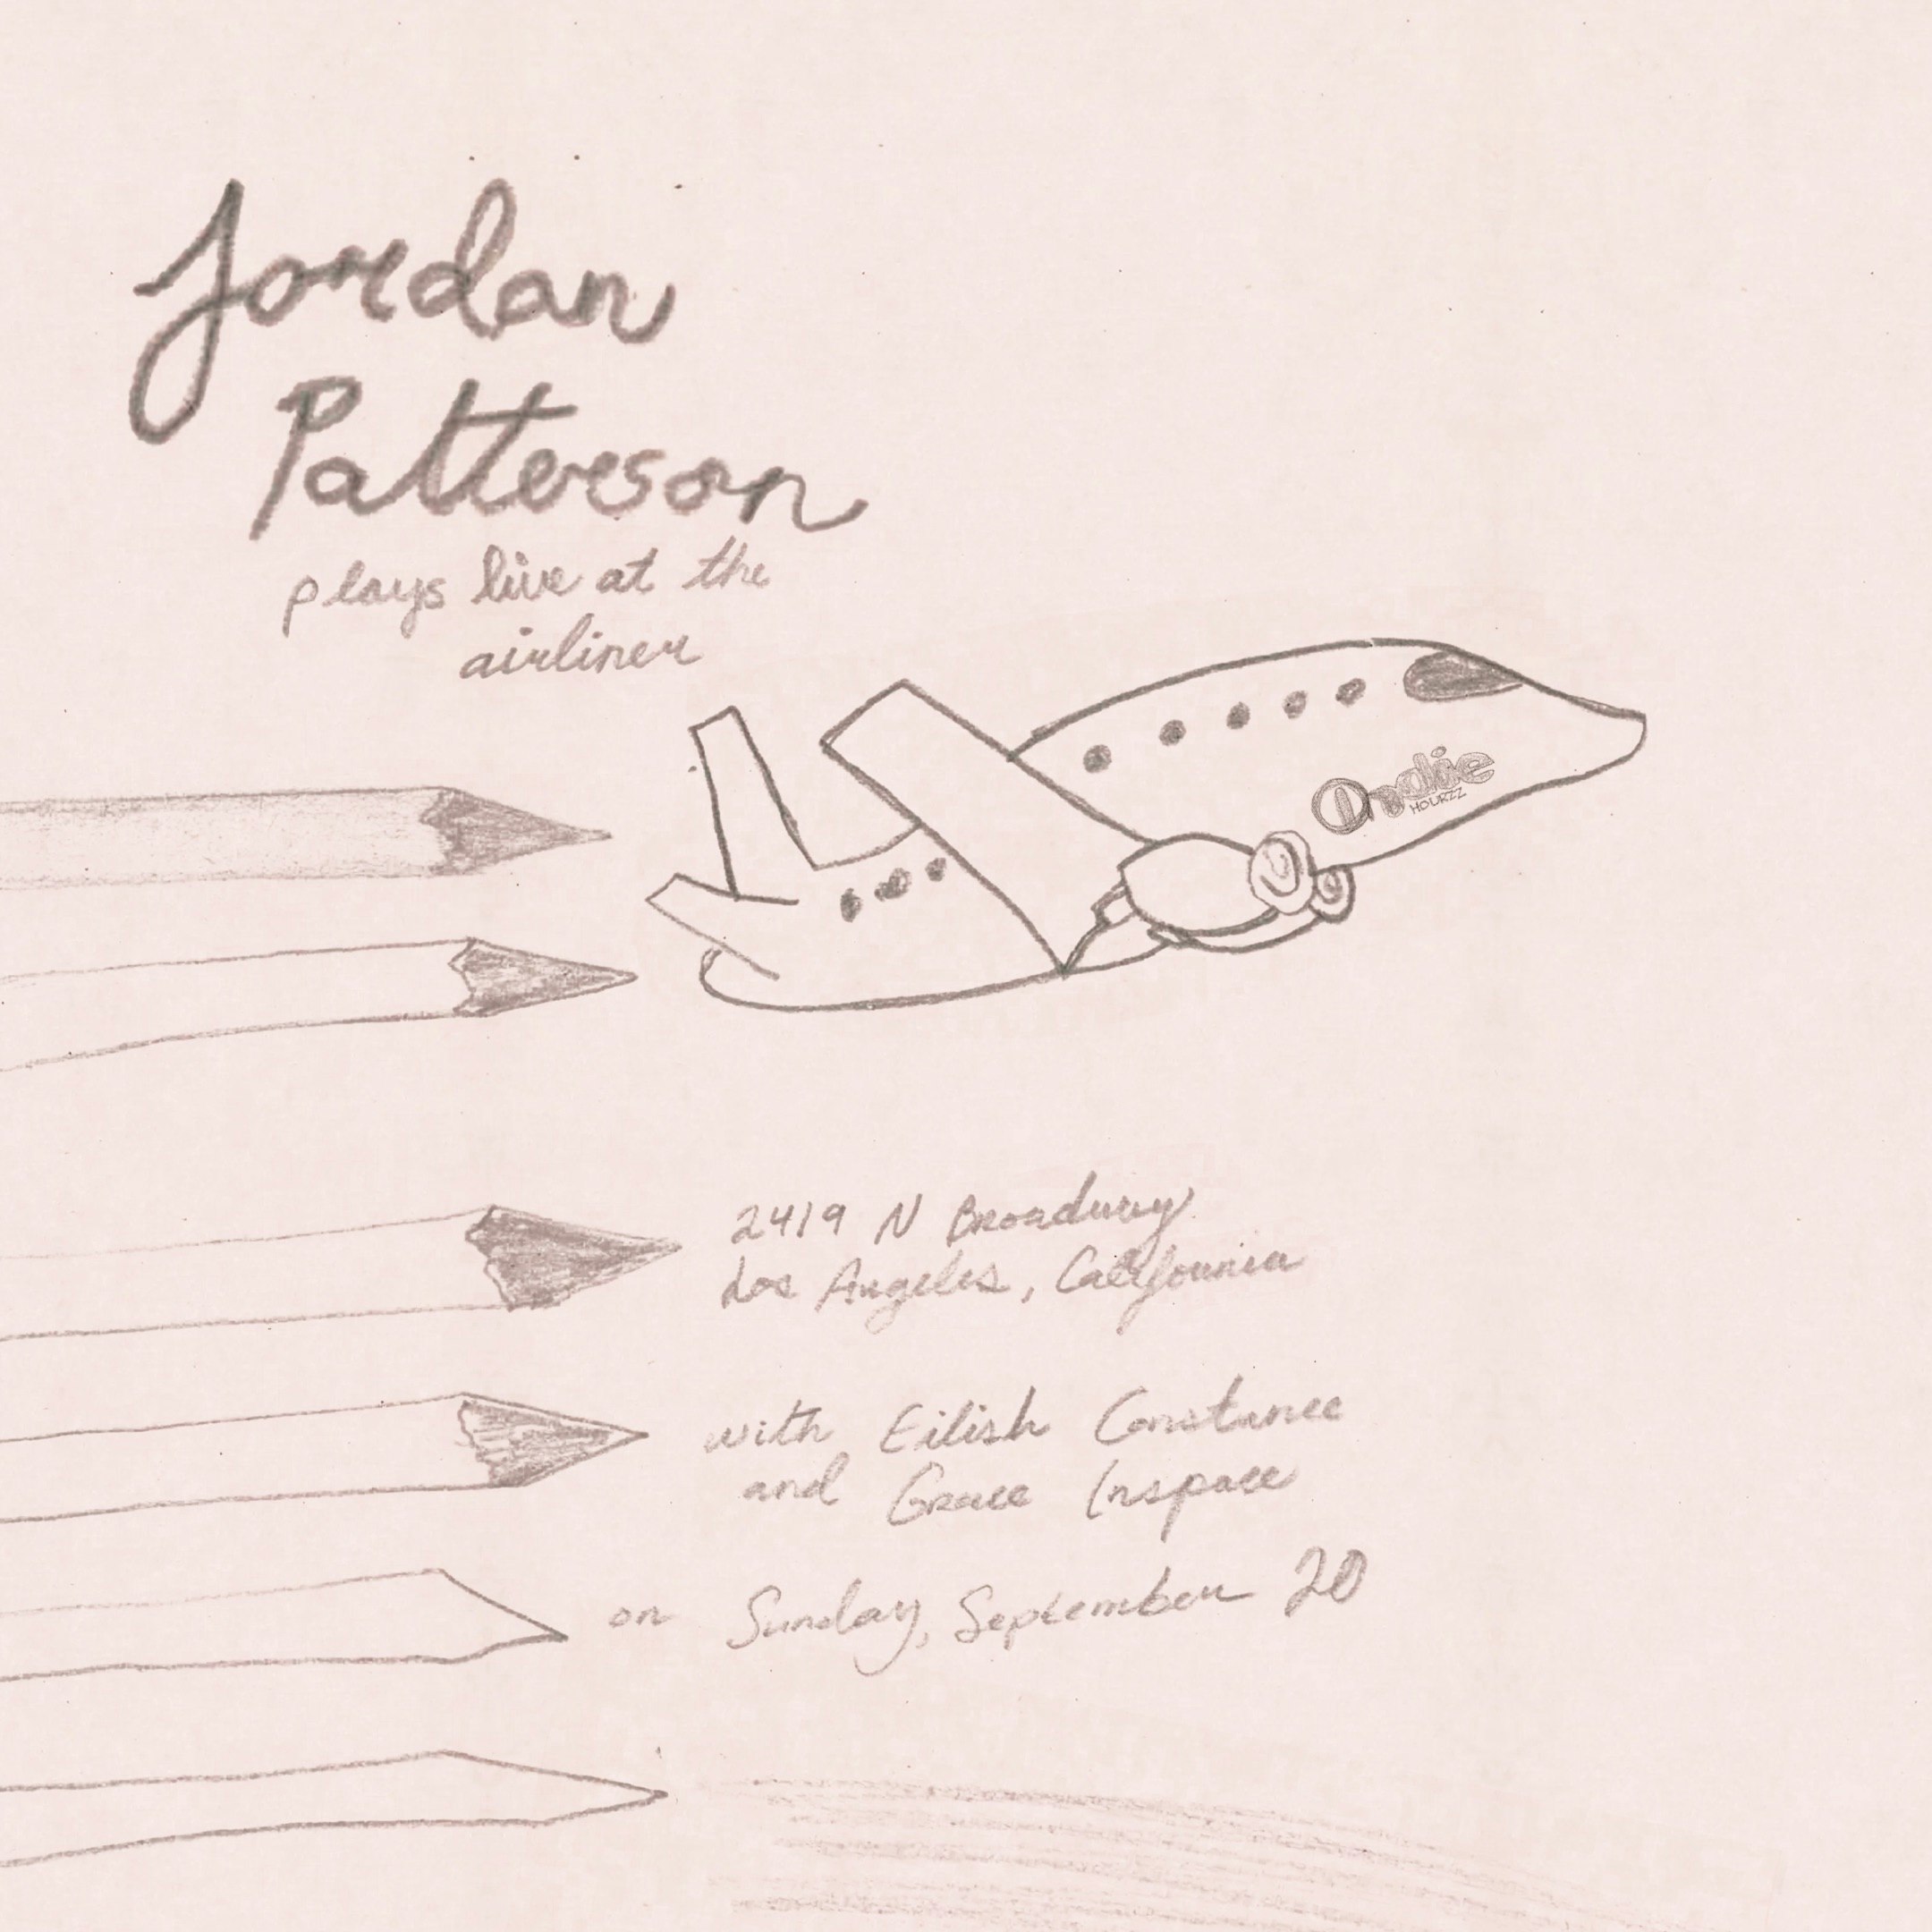 Jordan
Patterson
plays live at the
airliner
Indie
HOURZZ
2419 N Broadway
Los Angeles, California
with Eilish Constance
and Grace Inspace
on Sunday, September 20